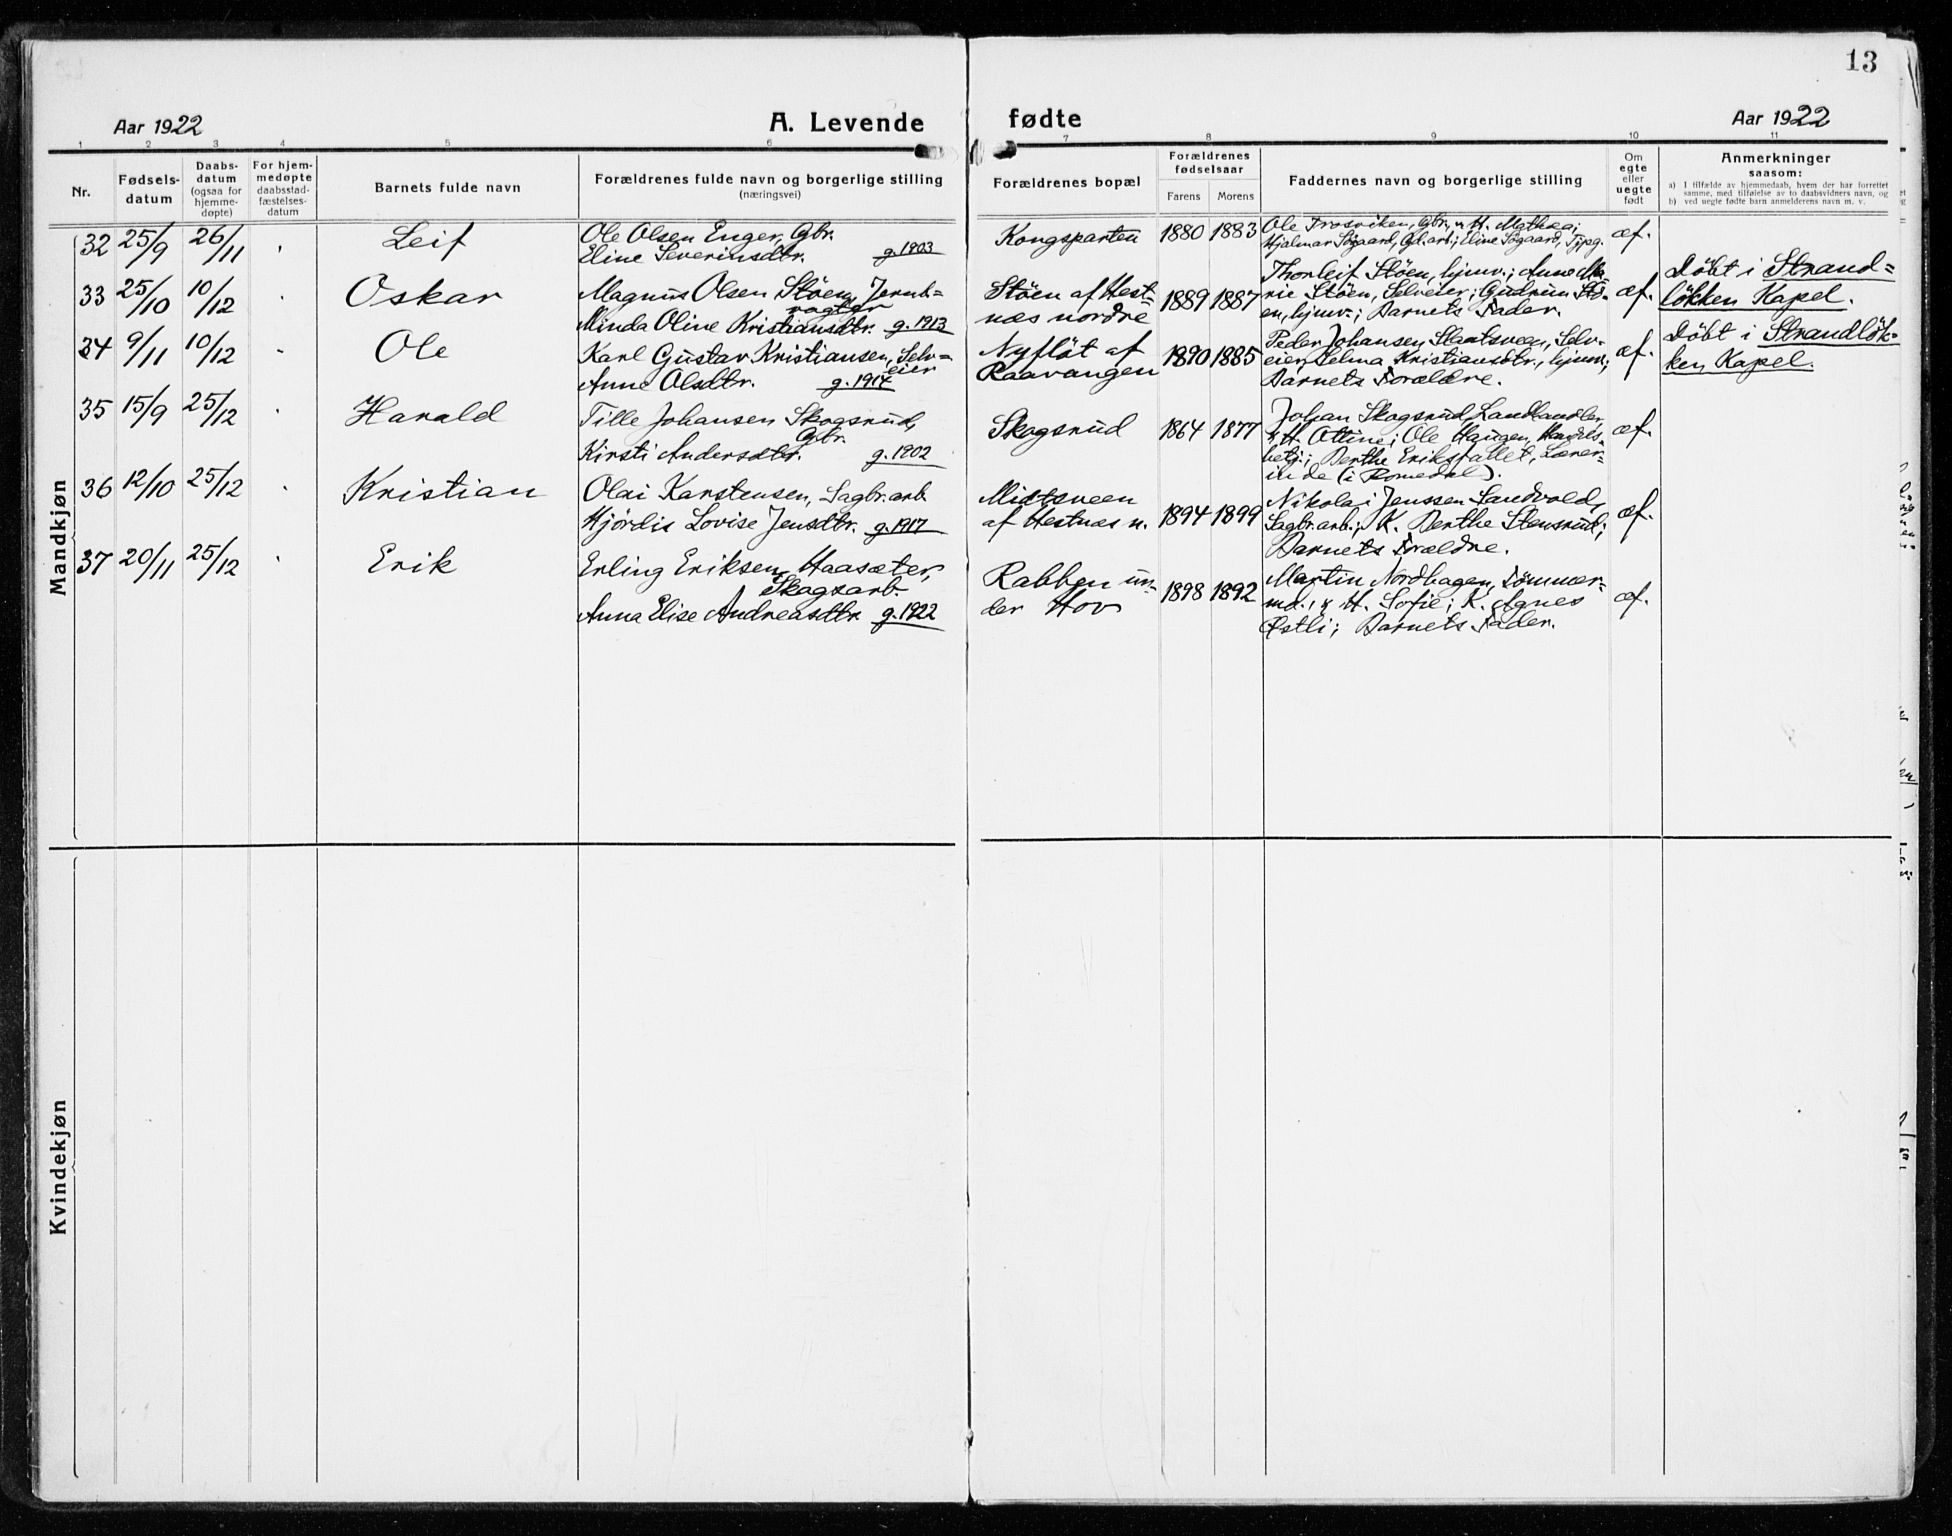 13
Aar 1922
A. Levende
fødte
Aar 1922
1 2 3 4 5 6 7 8 9 10 11
Nr.
Fødsels-
datum
Daabs-
datum
(ogsaa for
hjemme-
døpte)
For hjem-
medøpte
daabsstad-
fæstelses-
datum
Barnets fulde navn
Forældrenes fulde navn og borgerlige stilling
(næringsvei)
Forældrenes bopæl
Forældrenes
fødselsaar
Farens Morens
Faddernes navn og borgerlige stilling
Om
egte
eller
uegte
født
Anmerkninger
saasom:
a) I tilfælde av hjemmedaab, hvem der har forrettet
samme, med tilføielse av to daabsvidners navn, og
b) ved uegte fødte barn anmelderens navn m. v.
Mandkjøn
32 25/9 26/11 Leif
Ole Olsen Enger, Gbr.
Eline Severinsdtr. g. 1903
Kongsparten 1880 1883
Ole Frosviken, Gbr., & H. Mathea;
Hjalmar Sögaard, Gd.arb.; Eline Sögaard, Tjpg.
æf.
33 25/10 10/12 Oskar
Magnus Olsen Stöen, Jernb=
vogter
Minda Oline Kristiansdtr. g. 1913
Stöen af Hest=
næs nordre 1889 1887
Thorleif Stöen, hjmv.; Anne Ma-
rie Stöen, Selveier; Gudrun Stö-
en, hjmv.; Barnets Fader.
æf.
Döbt i Strand=
løkken Kapel.
34 9/11 10/12 Ole
Karl Gustav Kristiansen, Selv=
eier
Anne Olsdtr. g. 1914
Nyflöt af
Raavangen 1890 1885
Peder Johansen Slaatsveen, Selv-
eier, Selma Kristiansdtr., hjmv.;
Barnets Forældre.
æf.
Döbt i Strandløk-
ken Kapel.
35 15/9 25/12 Harald
Tille Johansen Skogsrud,
Gbr.
Kirsti Andersdtr. g. 1902
Skogsrud 1864 1877
Johan Skogsrud, Landhandler,
& H. Ottine; Ole Haugen, Handels-
betj.; Berthe Eriksfallet, Lærer-
inde (i Romedal).
æf.
36 12/10 25/12 Kristian
Olai Karstensen, Sagbr.arb.
Hjördis Lovise Jensdtr. g. 1917
Midtsveen
af Hestnæs n. 1894 1899
Nikolai Jenssen Sandvold,
Sagbr.arb.; K. Berthe Stensrud;
Barnets Forældre.
æf.
37 20/11 25/12 Erik
Erling Eriksen Haasæter,
Skogsarb.
Anna Elise Andreasdtr. g. 1922
Rabben un-
der Hov 1898 1892
Martin Nordhagen, Tömmer-
md., & H. Sofie; K. Agnes
Østli; Barnets Fader.
æf.
Kvindekjøn